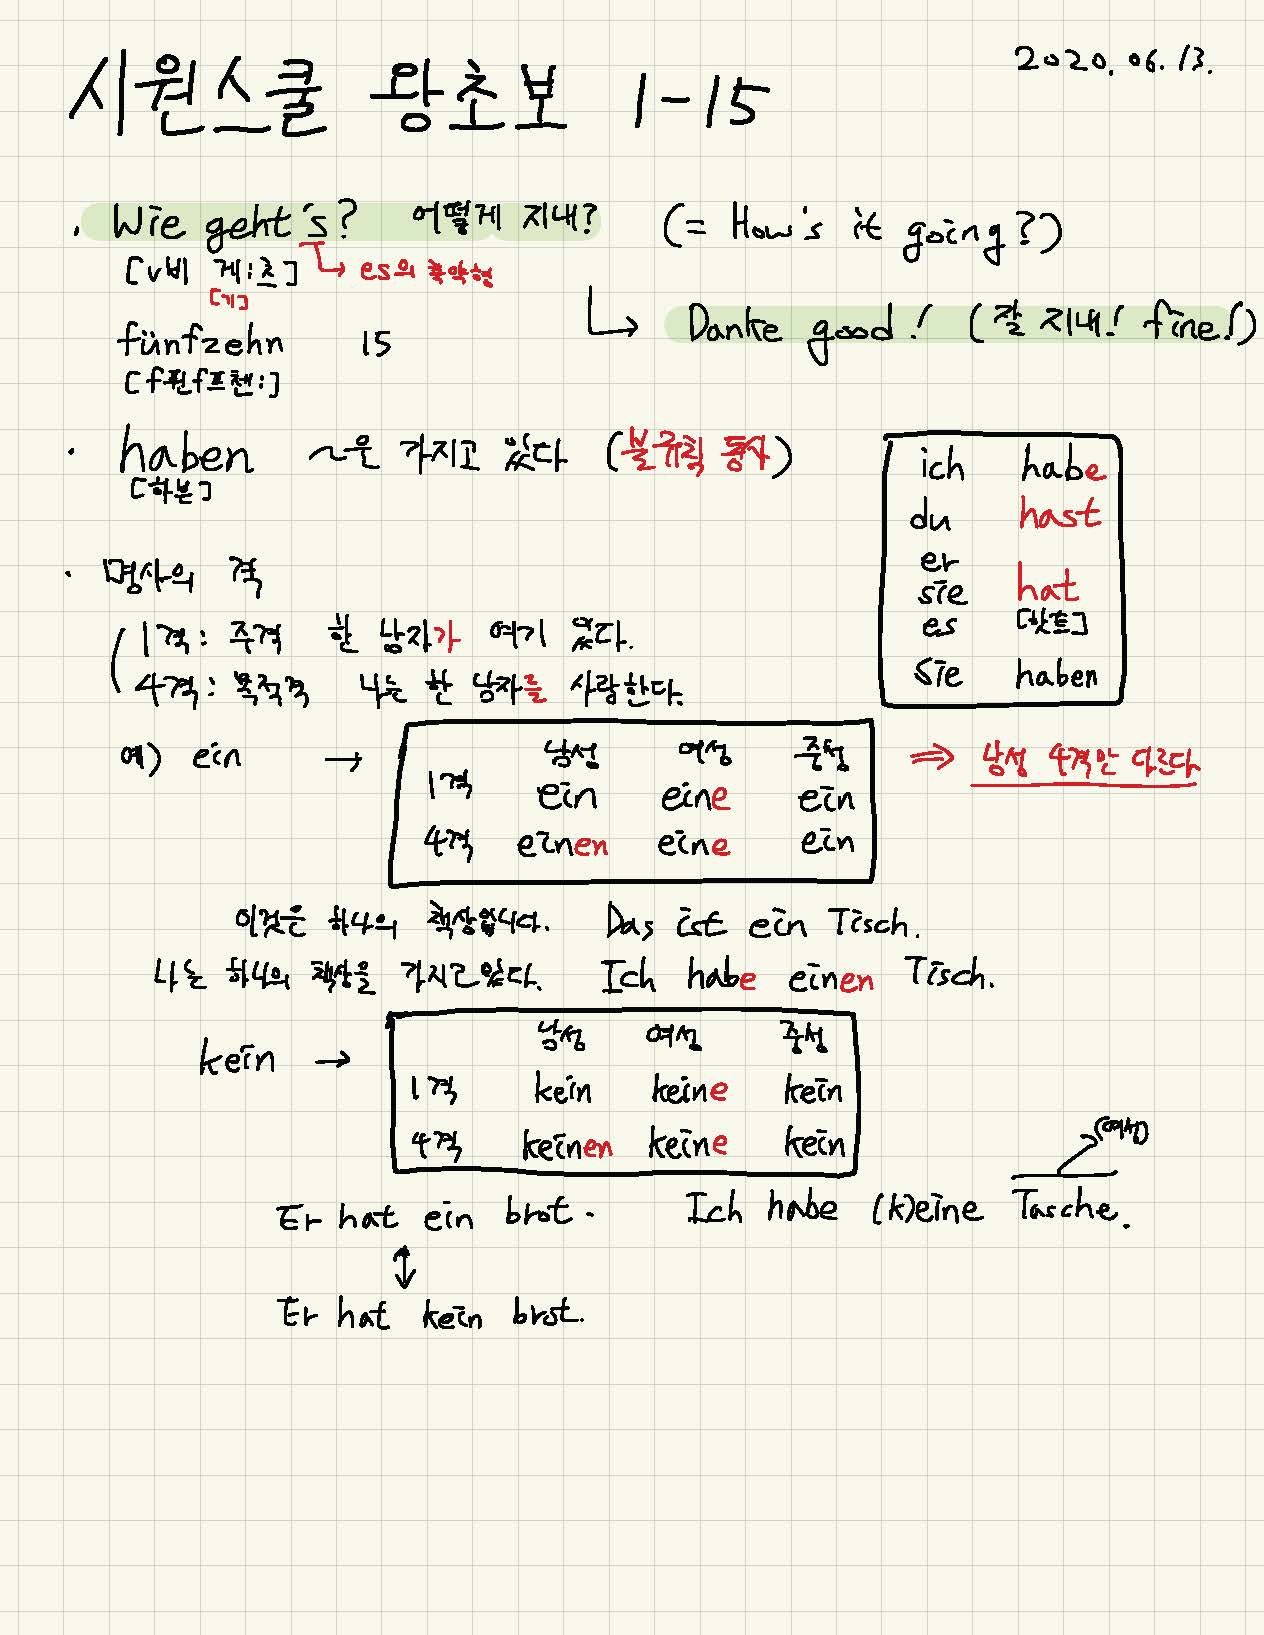 2020. 06. 13.
시원스쿨 왕초보 1-15
· Wie geht's? 어떻게 지내? (= How's it going?)
[v비 게:츠] → es의 축약형
[기]
↳ Danke good! (잘 지내! fine!)
fünfzehn 15
[f퓐f프첸:]
· haben ~은 가지고 있다 (불규칙 동사)
[하븐]
ich habe
du hast
er
sie hat
es [핫트]
Sie haben
· 명사의 격
1격: 주격 한 남자가 여기 있다.
4격: 목적격 나는 한 남자를 사랑한다.
예) ein →
남성 여성 중성
1격 ein eine ein
4격 einen eine ein
⇒ 남성 4격만 다르다
이것은 하나의 책상입니다. Das ist ein Tisch.
나는 하나의 책상을 가지고 있다. Ich habe einen Tisch.
kein →
남성 여성 중성
1격 kein keine kein
4격 keinen keine kein
(여성)
Er hat ein brot. Ich habe (k)eine Tasche.
↕
Er hat kein brot.